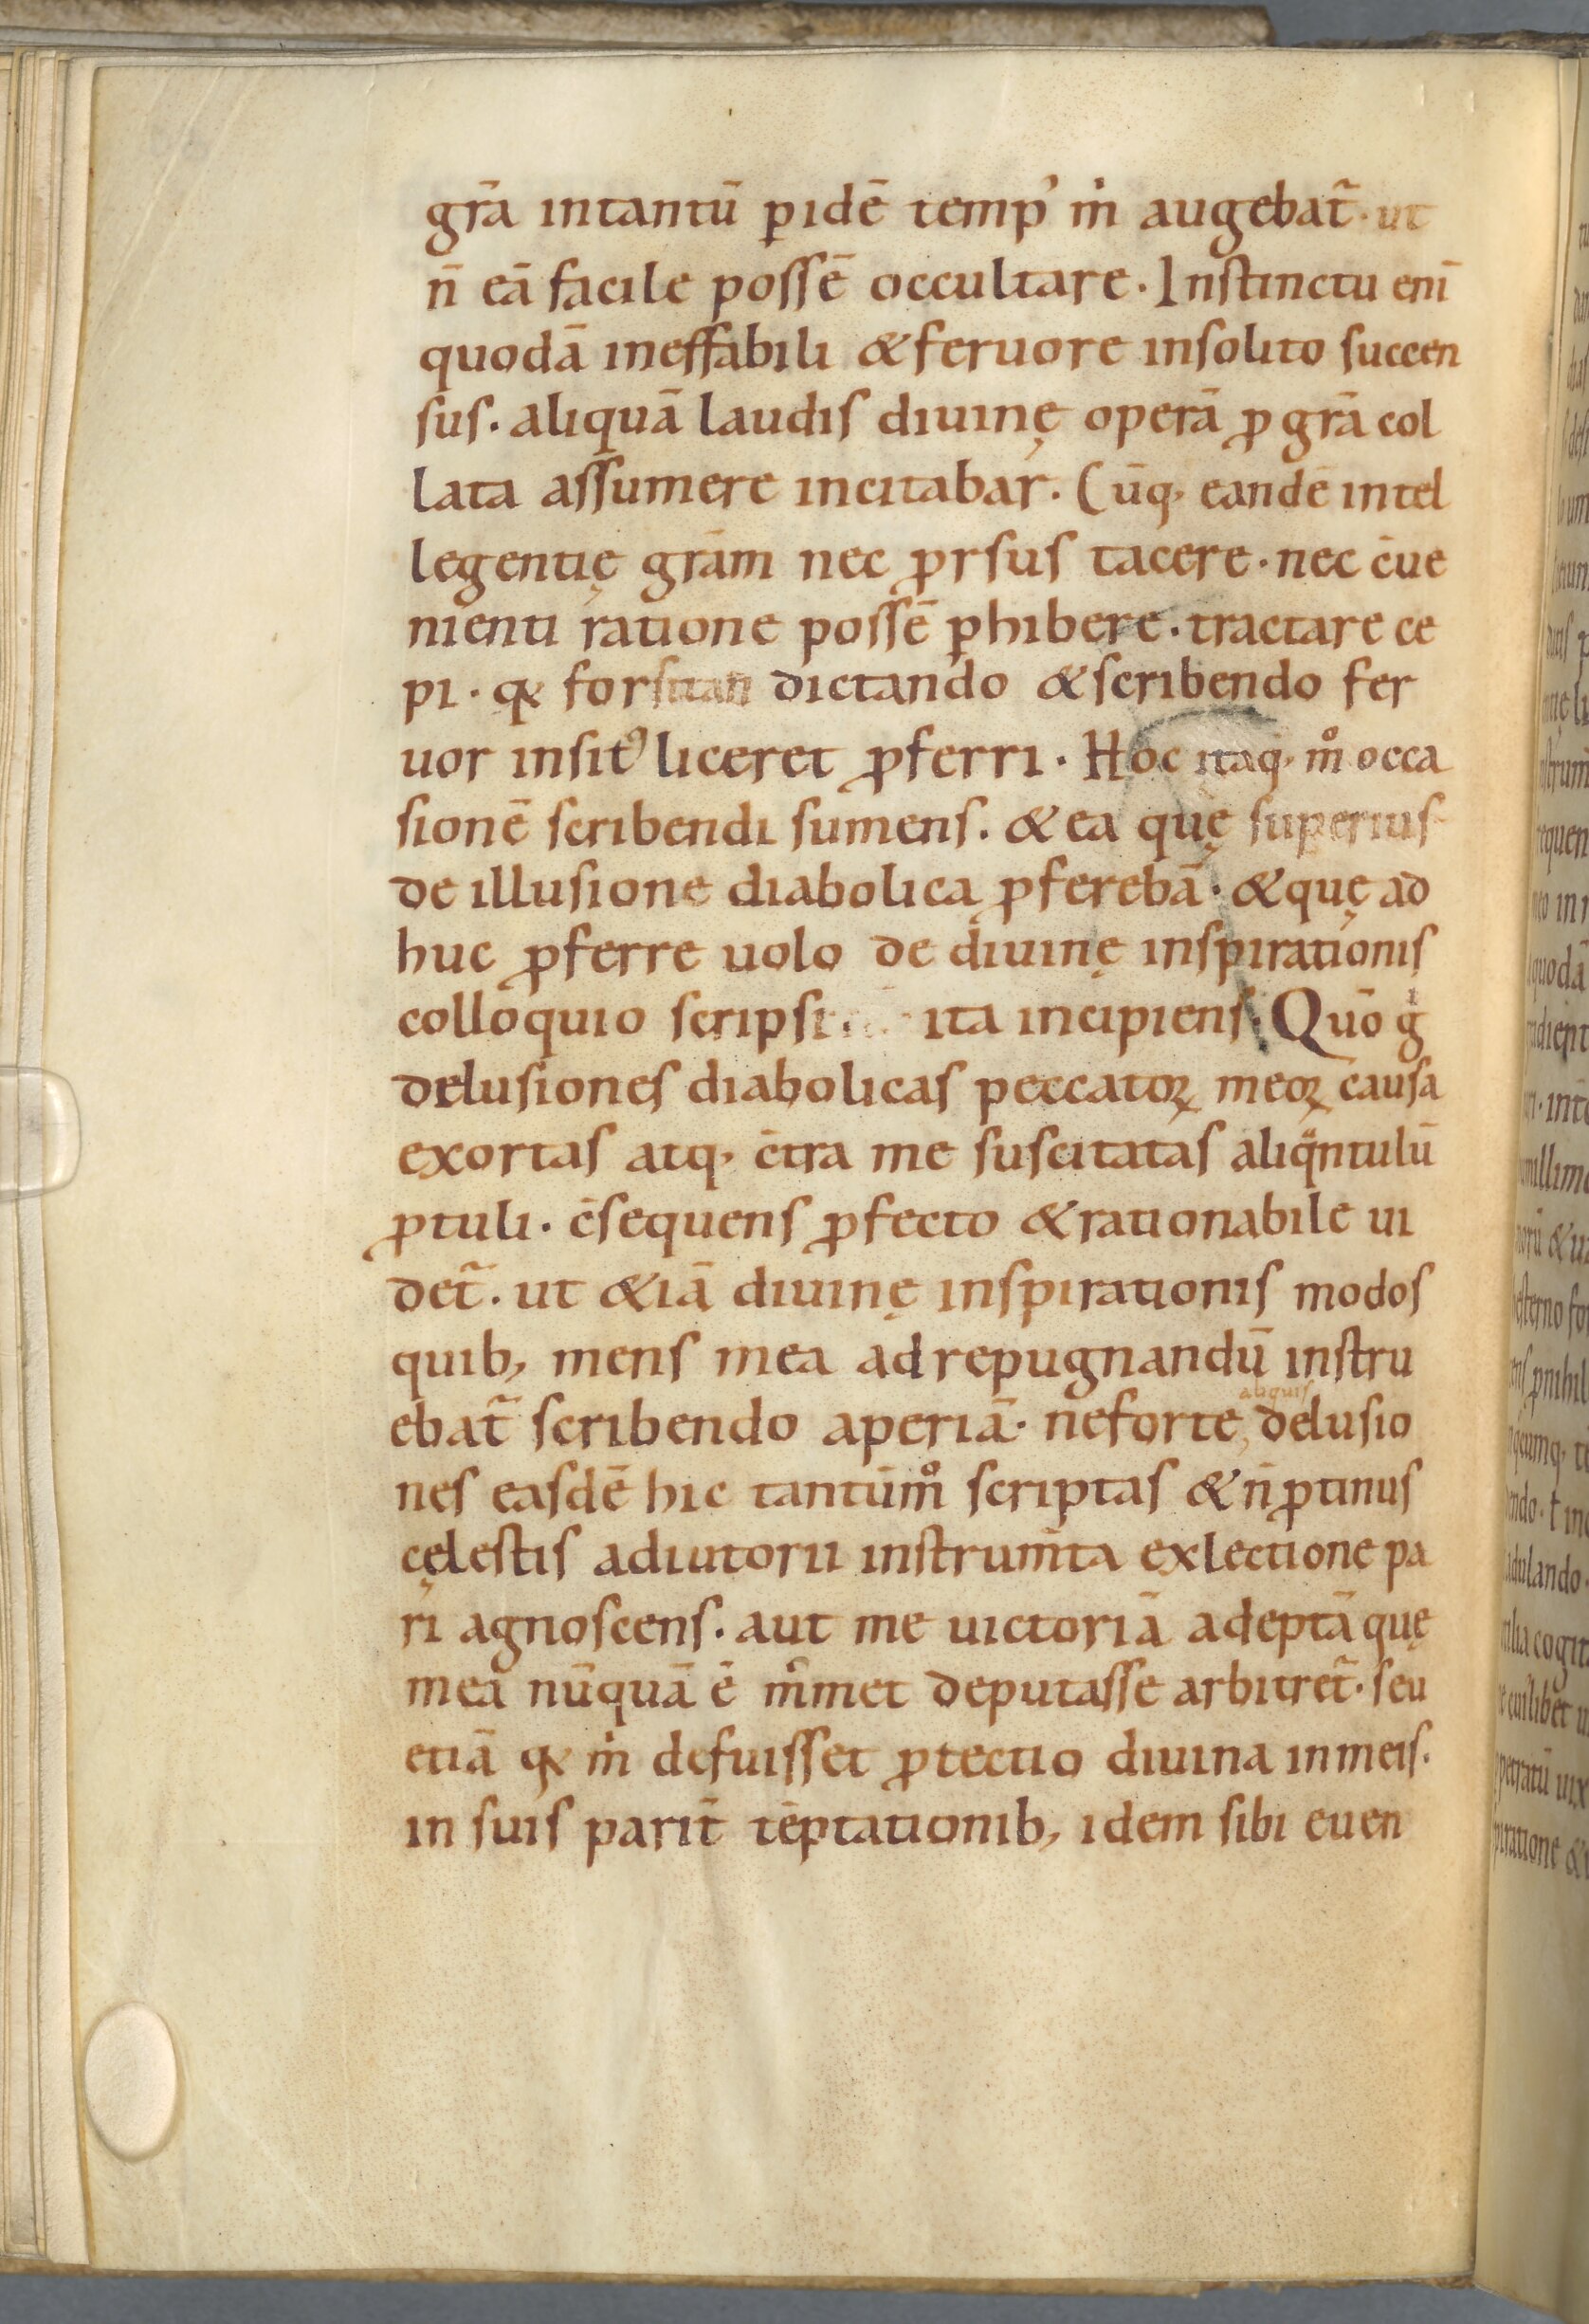 grā intantū ꝑ idē temp᾿ m̍ augebat̄· ut
n̄ eā facile possē occultare. Instinctu eni̅
quodā ineffabili & feruore insolito succen
sus. aliquā laudis diuinę operā ꝓ grā col
lata assumere incitabar̄. Cūq; eandē intel
legentię grām nec ꝓrsus tacere. nec c̄ue
nienti ratione possē ꝓhibere. tractare ce
pi. q& forsitan dictando & scribendo fer
uor insit᾿ liceret ꝓferri. Hoc itaq; mͦ occa
sionē scribendi sumens. & ea quę superius
de illusione diabolica ꝓferebā. & quę ad
huc ꝓferre uolo de diuinę inspirationis
colloquio scripsi. ita incipiens. Quō gͥ
delusiones diabolicas peccatoꝝ meoꝝ causa
exortas atq; c̄tra me suscitatas aliqᵃntulū
ꝓtuli. c̄sequens ꝓfecto & rationabile ui
det̄. ut &iā diuinę inspirationis modos
quib; mens mea ad repugnandū instru
ebat̄ scribendo aperiā. ne forte aliquis delusio
nes easdē hic tantūmͦ scriptas & n̄ ꝓtinus
cęlestis adiutorii instrum̄ta ex lectione pa
ri agnoscens. aut me uictoriā adeptā quę
mea nūquā ē m̍met deputasse arbitret̄. seu
etiā q& m̍ defuisset ꝓtectio diuina in meis.
in suis parit̄ tēptationib; idem sibi euen